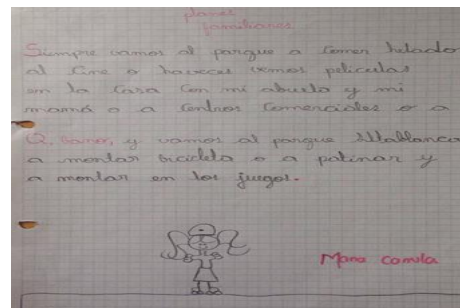 planes
familiares
Siempre vamos al parque a comer helado
al cine o haveces vemos peliculas
en la casa con mi abuelo y mi
mamá o a centros comerciales o a
Q. baner, y vamos al parque Villablanca
a montar bicicleta o a patinar y
a montar en los juegos.
Mara camila